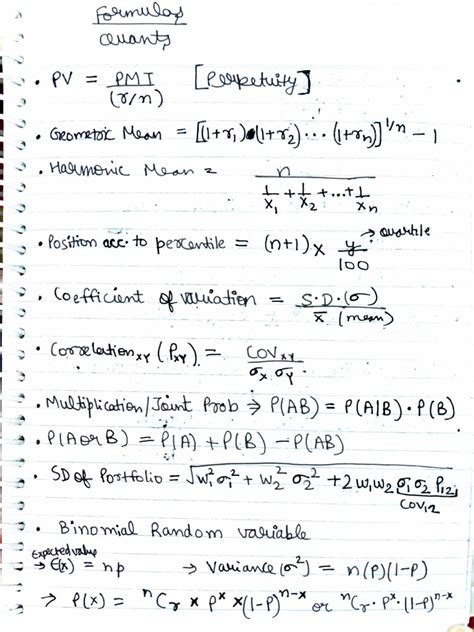 Formulas
Quants
• PV = PMT / (r/n) [Perpetuity]
• Geometric Mean = [(1+r₁)•(1+r₂)... (1+rₙ)]^1/n - 1
• Harmonic Mean = n / (1/x₁ + 1/x₂ + ... + 1/xₙ)
• Position acc. to percentile = (n+1) × y/100 → quartile
• Coefficient of variation = S.D.(σ) / x̄ (mean)
• Correlation_XY (ρ_XY) = COV_XY / σ_X σ_Y
• Multiplication/Joint Prob ⇒ P(AB) = P(A|B) · P(B)
• P(A or B) = P(A) + P(B) - P(AB)
• SD of Portfolio = √(w₁²σ₁² + w₂²σ₂² + 2w₁w₂ σ₁σ₂ρ₁₂)
COV₁₂
• Binomial Random variable
Expected value
→ E(x) = np → Variance (σ²) = n(P)(1-P)
→ P(x) = ⁿCᵣ × Pˣ × (1-P)ⁿ⁻ˣ or ⁿCᵣ · Pˣ · (1-P)ⁿ⁻ˣ